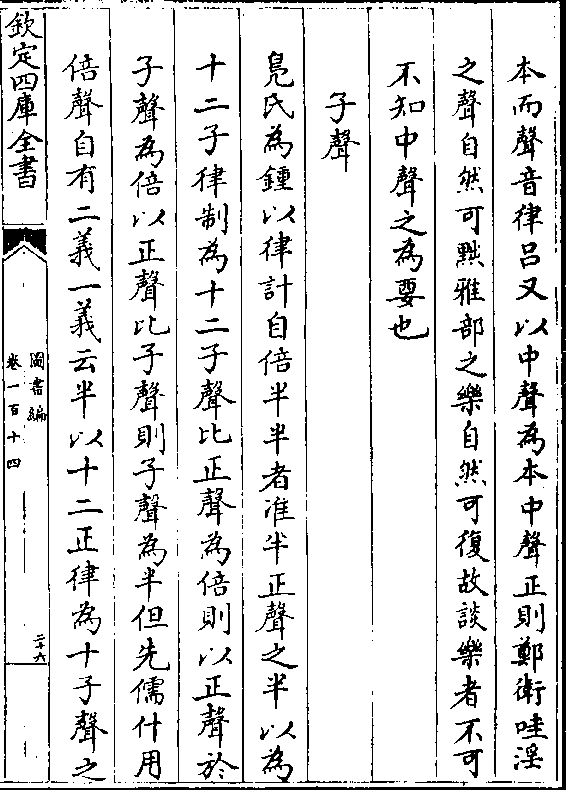 本而聲音律呂又以中聲為本中聲正則鄭衛哇淫
之聲自然可黜雅部之樂自然可復故談樂者不可
不知中聲之為要也
子聲
鳬氏為鍾以律計自倍半半者准半正聲之半以為
十二子律制為十二子聲比正聲為倍則以正聲於
子聲為倍以正聲比子聲則子聲為半但先儒什用
倍聲自有二義一義云半以十二正律為十子聲之
欽定四庫全書
圖書編
卷一百十四
二十六